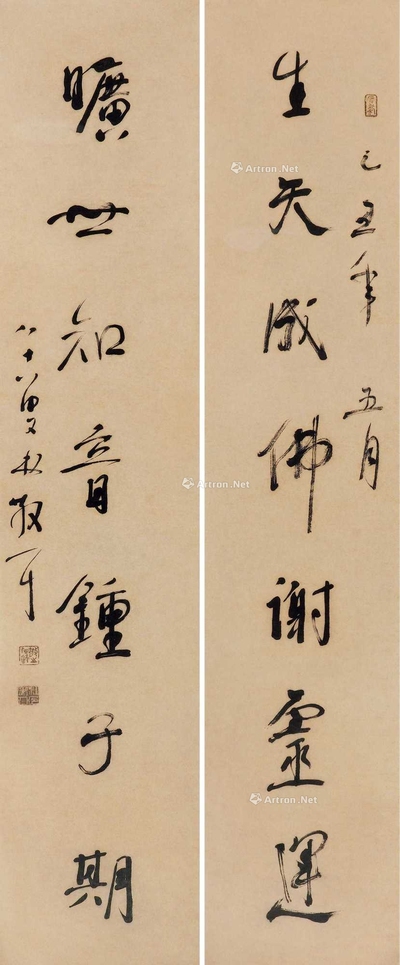 己丑年五月
生天成佛謝靈運
曠世知音鍾子期
八十八叟林散耳
Artron.Net
Artron.Net
Artron.Net